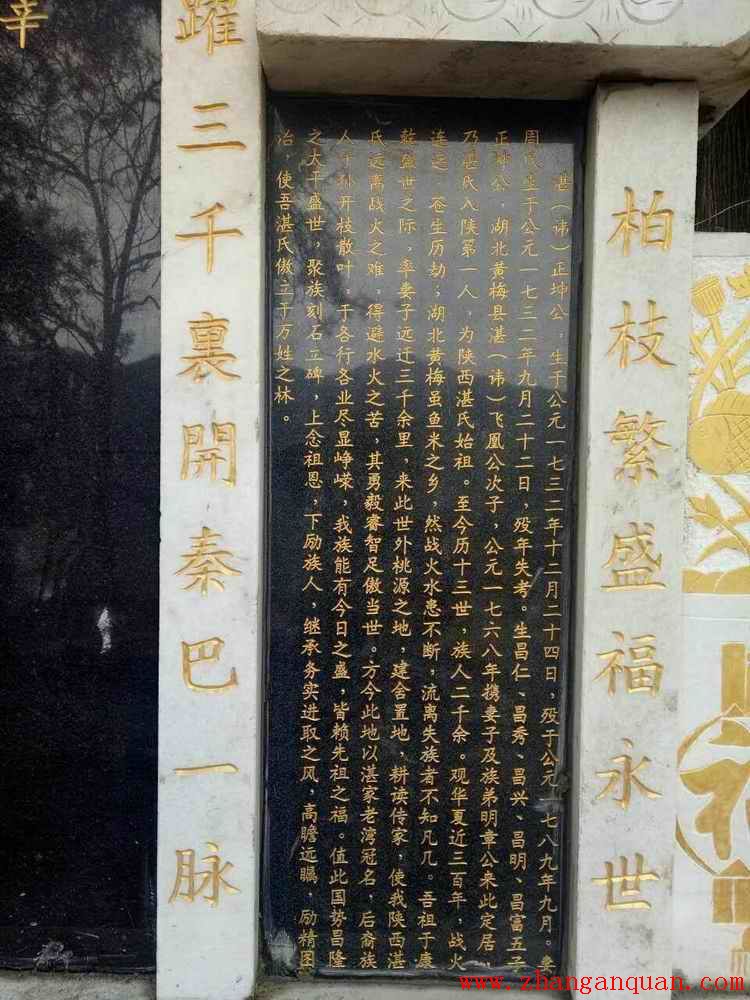 柏枝繁盛福永世
湛（讳）正坤公，生于公元一七三二年十二月二十四日，殁于公元一七八九年九月。妻
周氏生于公元一七三二年九月二十二日，殁年失考。生昌仁、昌秀、昌兴、昌明、昌富五子
正坤公，湖北黄梅县湛（讳）飞凰公次子，公元一七六八年携妻子及族弟明章公来此定居，
乃湛氏入陕第一人，为陕西湛氏始祖。至今历十三世，族人二千余。观华夏近三百年，战火
连远，苍生历劫；湖北黄梅虽鱼米之乡，然战火水患不断，流离失族者不知凡几。吾祖于康
乾盛世之际，率妻子远迁三千余里，来此世外桃源之地，建舍置地，耕读传家，使我陕西湛
氏远离战火之难，得避水火之苦，其勇毅睿智足傲当世。方今此地以湛家老湾冠名，后裔族
人千孙开枝散叶 于各行各业尽显峥嵘，我族能有今日之盛，皆赖先祖之福。值此国势昌隆
之太平盛世，聚族刻石立碑，上念祖恩，下励族人，继承务实进取之风，高瞻远瞩，励精图
治，使吾湛氏傲立于万姓之林。
躍三千裏開秦巴一脉
幸
www.zhanganquan.com